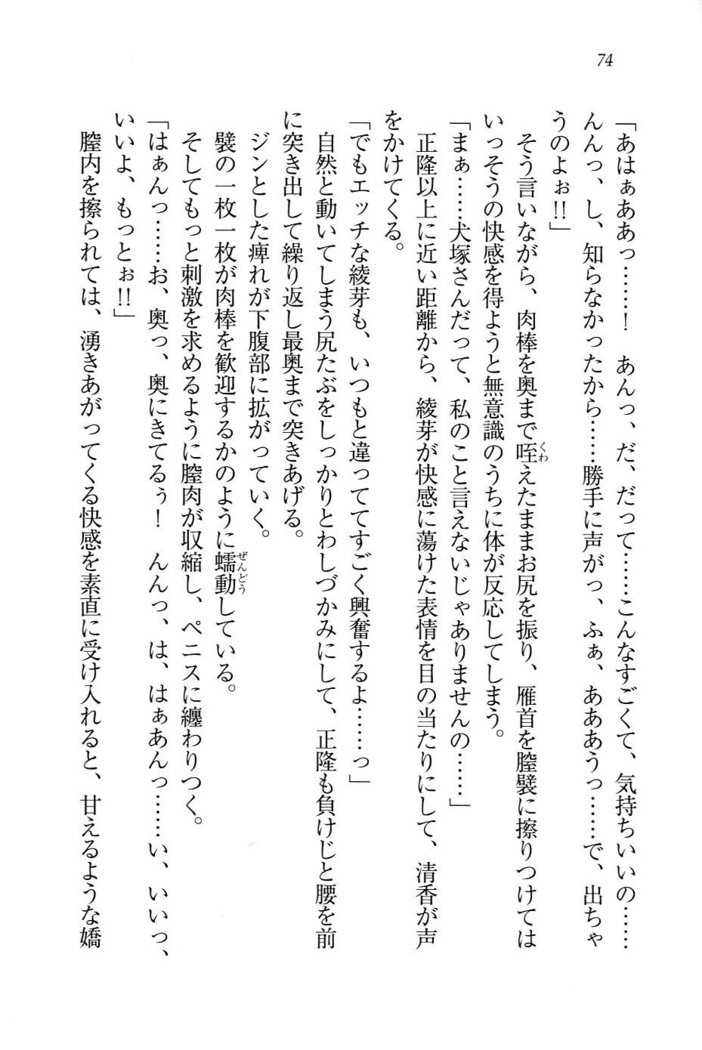 74
「あはぁああっ……！　あんっ、だ、だって……こんなすごくて、気持ちいいの……
んんっ、し、知らなかったから……勝手に声がっ、ふぁ、あああうっ……で、出ちゃ
うのよぉ!!」
　そう言いながら、肉棒を奥まで咥えたままお尻を振り、雁首を膣襞に擦りつけては
くわ
いっそうの快感を得ようと無意識のうちに体が反応してしまう。
「まぁ……犬塚さんだって、私のこと言えないじゃありませんの……」
　正隆以上に近い距離から、綾芽が快感に蕩けた表情を目の当たりにして、清香が声
をかけてくる。
「でもエッチな綾芽も、いつもと違っててすごく興奮するよ……っ」
　自然と動いてしまう尻たぶをしっかりとわしづかみにして、正隆も負けじと腰を前
に突き出して繰り返し最奥まで突きあげる。
　ジンとした痺れが下腹部に拡がっていく。
　襞の一枚一枚が肉棒を歓迎するかのように蠕動している。
ぜんどう
　そしてもっと刺激を求めるように膣肉が収縮し、ペニスに纏わりつく。
「はぁんっ……お、奥っ、奥にきてるぅ！　んんっ、は、はぁあんっ……い、いいっ、
いいよ、もっとぉ!!」
　膣内を擦られては、湧きあがってくる快感を素直に受け入れると、甘えるような嬌